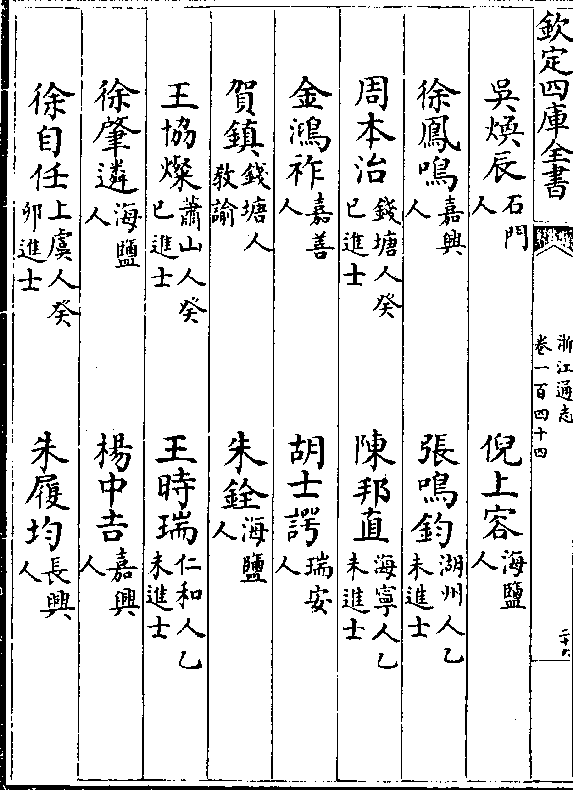 欽定四庫全書
浙江通志
卷一百四十四
二十六
吳煥辰石門人
倪上容海鹽人
徐鳳鳴嘉興人
張鳴鈞湖州人乙未進士
周本治錢塘人癸巳進士
陳邦直海寧人乙未進士
金鴻祚嘉善人
胡士諤瑞安人
賀鎮錢塘人教諭
朱銓海鹽人
王協燦蕭山人癸巳進士
王時瑞仁和人乙未進士
徐肇遴海鹽人
楊中吉嘉興人
徐自任上虞人癸卯進士
朱履均長興人